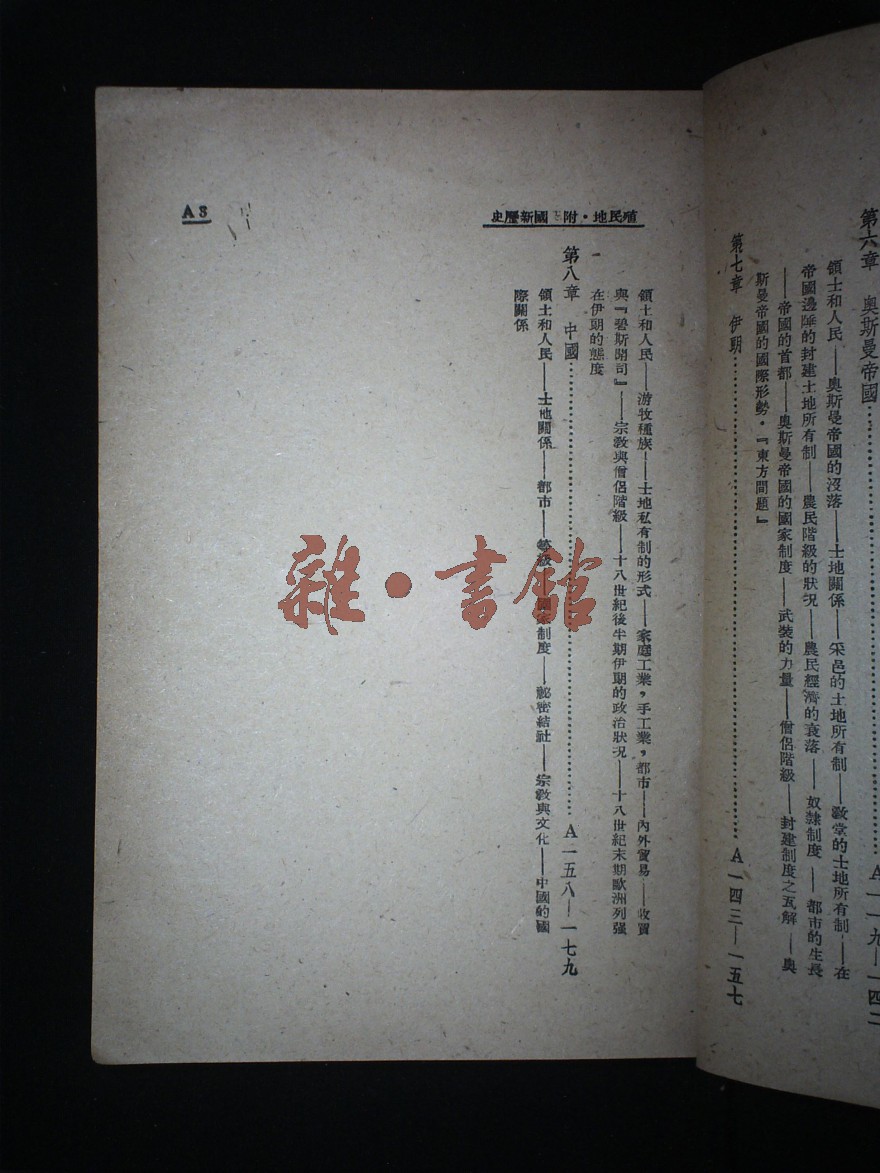 第六章　奧斯曼帝國……A一一九—一四二
領土和人民——奧斯曼帝國的沒落——土地關係——采邑的土地所有制——敎堂的土地所有制——在
帝國邊陲的封建土地所有制——農民階級的狀況——農民經濟的衰落——奴隸制度——都市的生長
——帝國的首都——奧斯曼帝國的國家制度——武裝的力量——僧侶階級——封建制度之瓦解——奧
斯曼帝國的國際形勢·『東方問題』
第七章　伊朗……A一四三—一五七
殖民地·附 國新歷史
A3
領土和人民——游牧種族——土地私有制的形式——家庭工業，手工業，都市——內外貿易——收買
與『碧斯開司』——宗敎與僧侶階級——十八世紀後半期伊朗的政治狀況——十八世紀末期歐洲列强
在伊朗的態度
第八章　中國……A一五八—一七九
領土和人民——土地關係——都市——等級——國家制度——祕密結社——宗敎與文化——中國的國
際關係
雜·書館